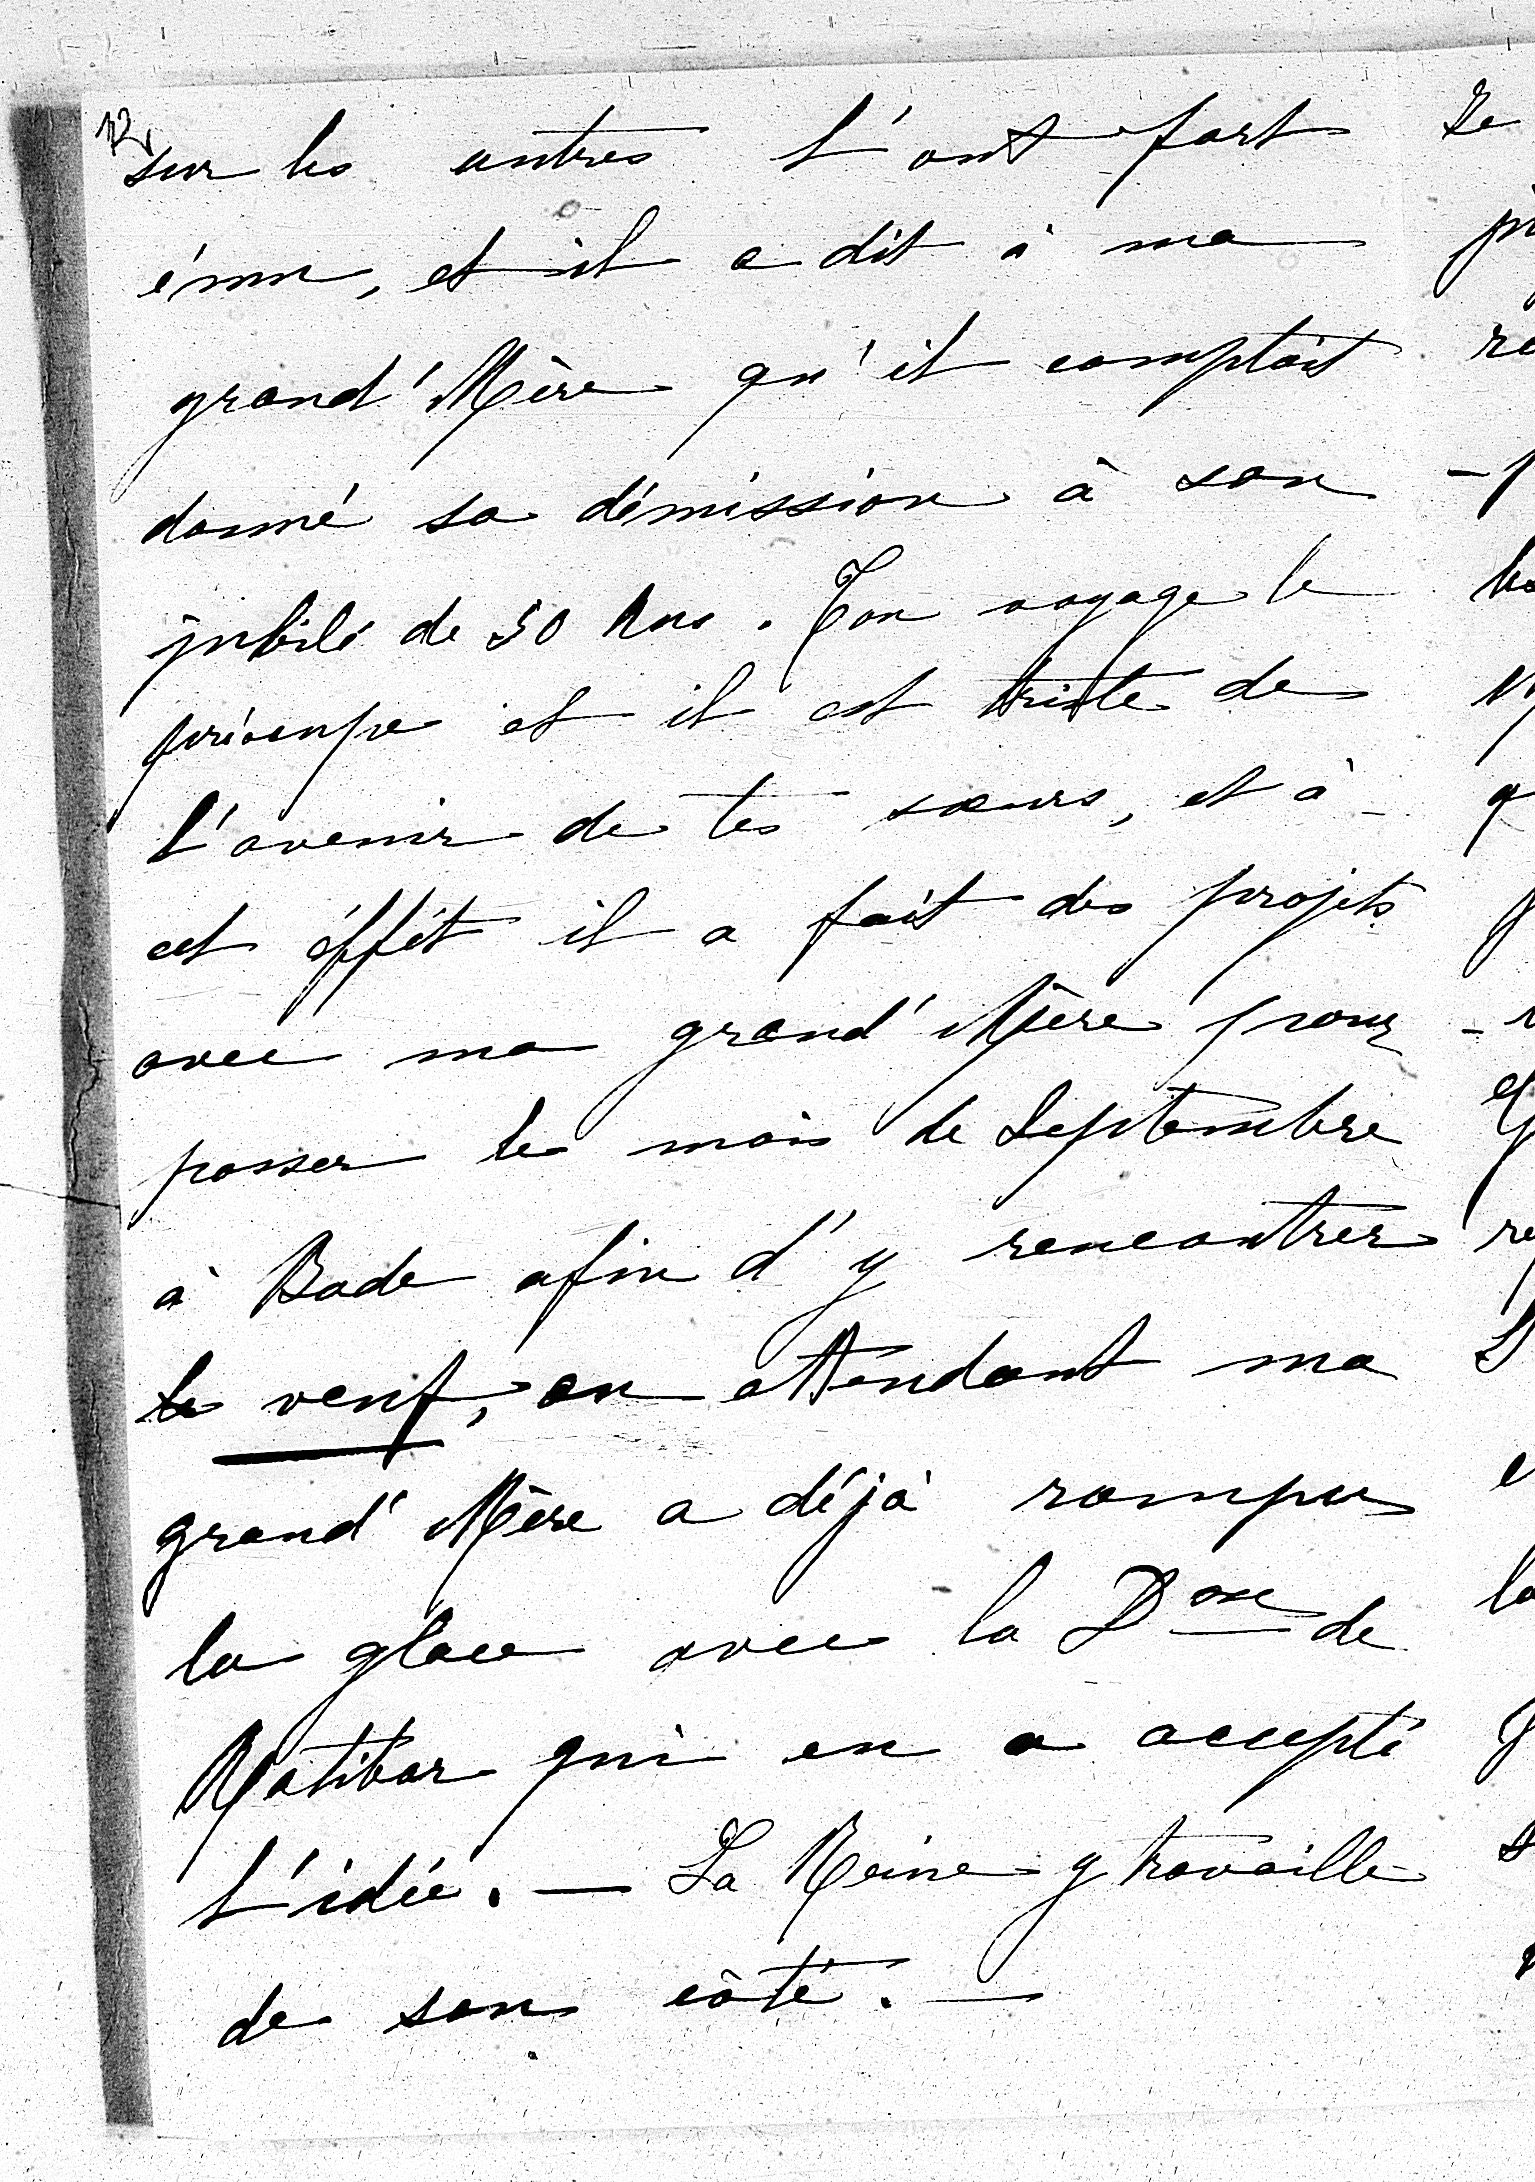 12
sur les autres l'ont fort
ému, et il a dit à ma
grand'Mère qu'il comptait
donné sa démission à son
jubilé de 50 Ans. Ton voyage le
préoccupe et il est triste de
l'avenir de tes sœurs, et à
cet éffét il a fait des projets
avec ma grand'Mère pour
passer le mois de Septembre
à Bade afin d'y rencontrer
le veuf, en attendant ma
grand'Mère a déjà rompu
la glace avec la Dsse de
Ratibor qui en a accepté
l'idée. — La Reine y travaille
de son côté. —